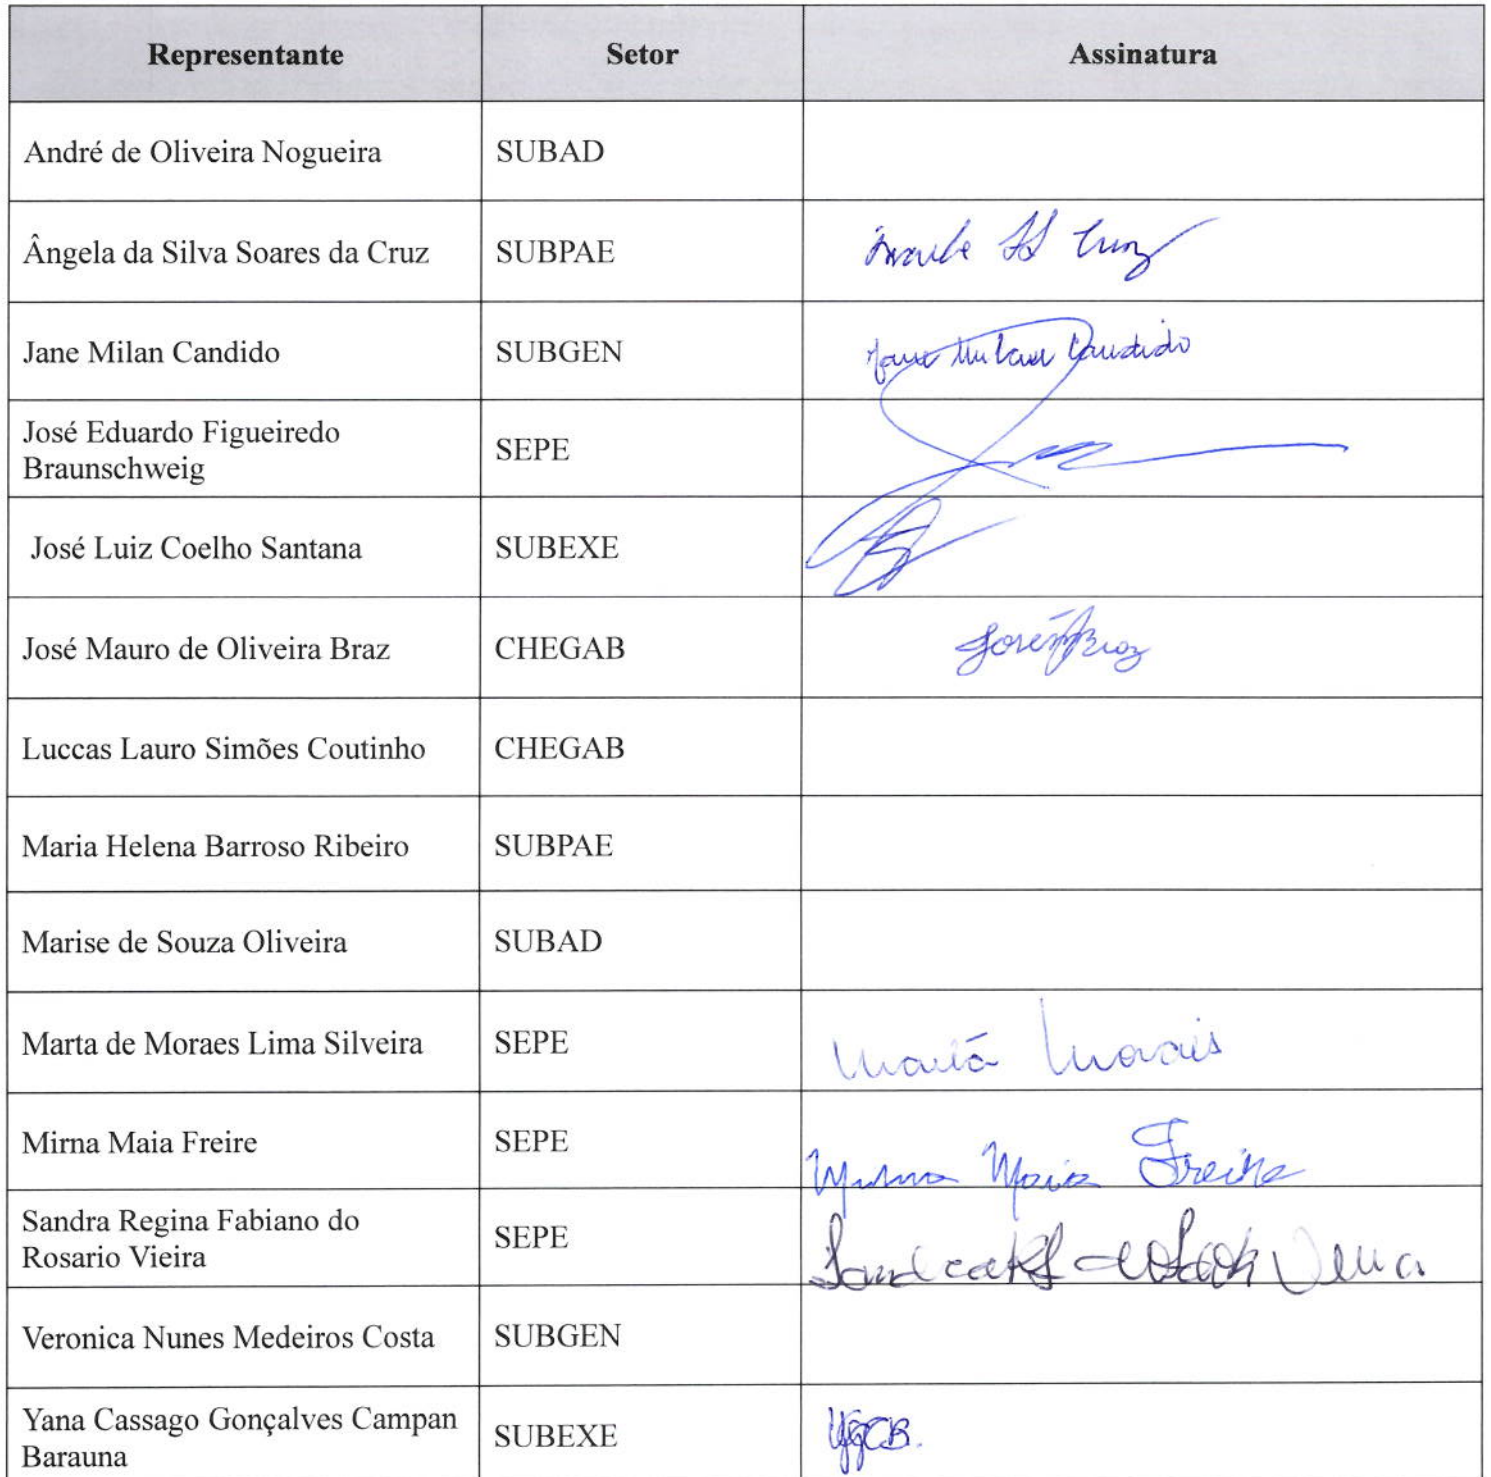 Representante Setor Assinatura
André de Oliveira Nogueira SUBAD
Ângela da Silva Soares da Cruz SUBPAE
Jane Milan Candido SUBGEN Jane Milan Candido
José Eduardo Figueiredo
Braunschweig SEPE
José Luiz Coelho Santana SUBEXE
José Mauro de Oliveira Braz CHEGAB
Luccas Lauro Simões Coutinho CHEGAB
Maria Helena Barroso Ribeiro SUBPAE
Marise de Souza Oliveira SUBAD
Marta de Moraes Lima Silveira SEPE Marta Morais
Mirna Maia Freire SEPE Mirna Maia Freire
Sandra Regina Fabiano do
Rosario Vieira SEPE
Veronica Nunes Medeiros Costa SUBGEN
Yana Cassago Gonçalves Campan
Barauna SUBEXE